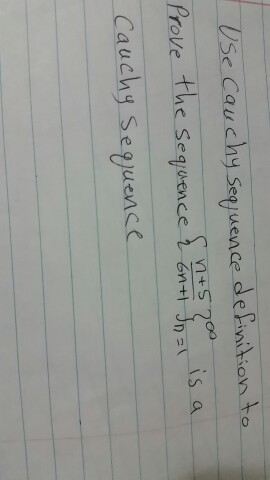 Use Cauchy sequence definition to
Prove the sequence { n+5 / 6n+1 }∞ n=1 is a
Cauchy sequence